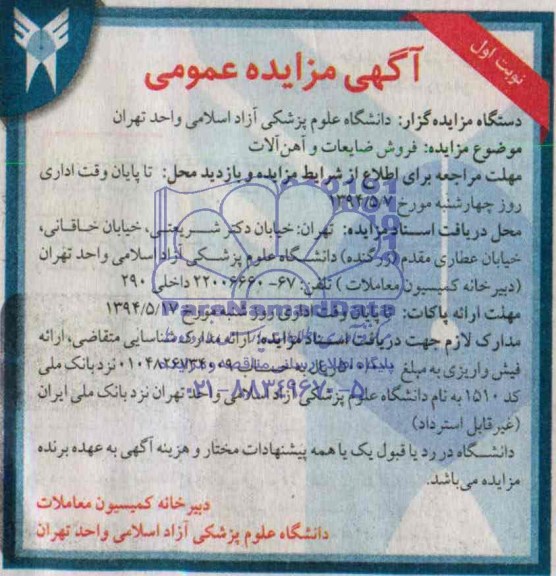 نوبت اول
آگهی مزایده عمومی
دستگاه مزایده‌گزار: دانشگاه علوم پزشکی آزاد اسلامی واحد تهران
موضوع مزایده: فروش ضایعات و آهن‌آلات
مهلت مراجعه برای اطلاع از شرایط مزایده و بازدید محل: تا پایان وقت اداری
روز چهارشنبه مورخ ۱۳۹۴/۵/۷
محل دریافت اسناد مزایده: تهران: خیابان دکتر شریعتی، خیابان خاقانی،
خیابان عطاری مقدم دانشگاه علوم پزشکی آزاد اسلامی واحد تهران
(دبیرخانه کمیسیون معاملات) تلفن: ۶۷-۲۲۰۰۶۶۶۰ داخلی ۲۹۰
مهلت ارائه پاکات: تا پایان وقت اداری روز شنبه مورخ ۱۳۹۴/۵/۱۷
مدارک لازم جهت دریافت اسناد مزایده: ارائه مدارک شناسایی متقاضی، ارائه
فیش واریزی به مبلغ نزد بانک ملی
کد ۱۵۱۰ به نام دانشگاه علوم پزشکی آزاد اسلامی واحد تهران نزد بانک ملی ایران
(غیرقابل استرداد)
دانشگاه در رد یا قبول یک یا همه پیشنهادات مختار و هزینه آگهی به عهده برنده
مزایده می‌باشد.
دبیرخانه کمیسیون معاملات
دانشگاه علوم پزشکی آزاد اسلامی واحد تهران
ParsNamadData
پایگاه اطلاع رسانی مناقصه و مزایده
۰۲۱-۸۸۳۴۹۶۷۰-۵